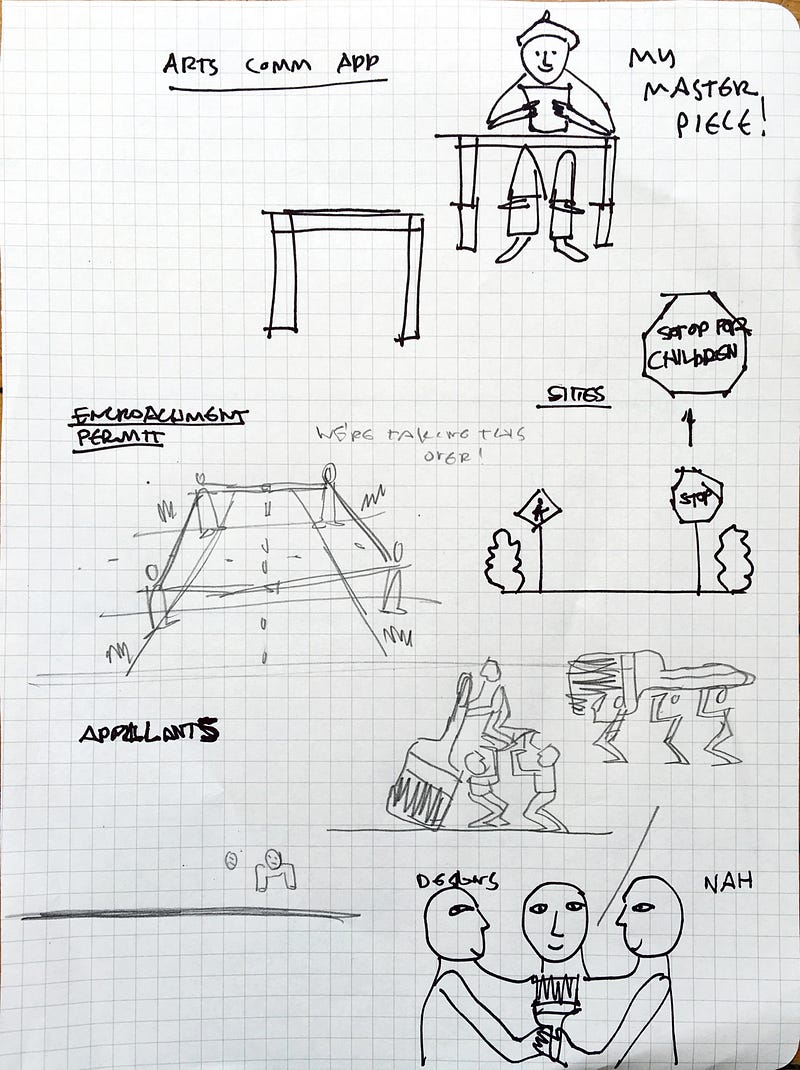 ARTS COMM APP
MY
MASTER
PIECE!
STOP FOR
CHILDREN
SITES
ENCROACHMENT
PERMIT
WE'RE TAKING THIS
OVER!
STOP
APPLLANTS
DESIGNS
NAH